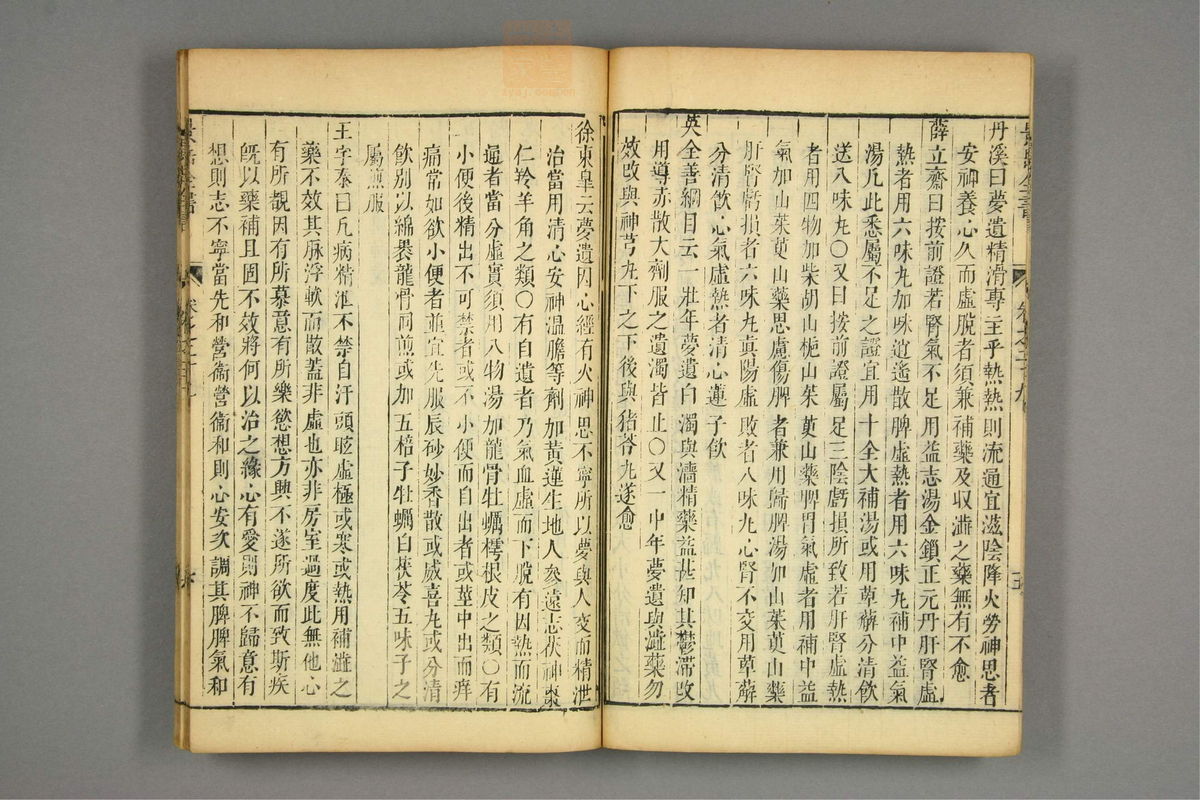 丹溪曰夢遺精滑專主乎熱熱則流通宜滋陰降火勞神思者
安神養心久而虛脫者須兼補藥及収澁之藥無有不愈
薛立齋曰按前證若腎氣不足用益志湯金鎖正元丹肝腎虛
熱者用六味丸加味逍遙散脾虛熱者用六味丸補中益氣
湯凡此悉屬不足之證宜用十全大補湯或用萆薢分清飲
送八味丸〇又曰按前證屬足三陰虧損所致若肝腎虛熱
者用四物加柴胡山梔山茱萸山藥脾胃氣虛者用補中益
氣加山茱萸山藥思慮傷脾者兼用歸脾湯加山茱萸山藥
肝腎虧損者六味丸眞陽虛敗者八味丸心腎不交用萆薢
分清飲心氣虛熱者清心蓮子飲
樓全善綱目云一壯年夢遺白濁與澁精藥益甚知其鬱滯改
用導赤散大劑服之遺濁皆止〇又一中年夢遺與澁藥勿
效改與神芎丸下之下後與猪苓丸遂愈
徐東皐云夢遺因心經有火神思不寧所以夢與人交而精泄
治當用清心安神溫膽等劑加黃連生地人參遠志茯神棗
仁羚羊角之類〇有自遺者乃氣血虛而下脫有因熱而流
通者當分虛實須用八物湯加龍骨牡蠣樗根皮之類〇有
小便後精出不可禁者或不小便而自出者或莖中出而痒
痛常如欲小便者並宜先服辰砂妙香散或威喜丸或分清
飲別以綿裹龍骨同煎或加五棓子牡蠣白茯苓五味子之
屬煎服
王字泰曰凡病精泄不禁自汗頭眩虛極或寒或熱用補澁之
藥不效其脉浮軟而散蓋非虛也亦非房室過度此無他心
有所覩因有所慕意有所樂慾想方興不遂所欲而致斯疾
旣以藥補且固不效將何以治之緣心有愛則神不歸意有
想則志不寧當先和營衛營衞和則心安次調其脾脾氣和